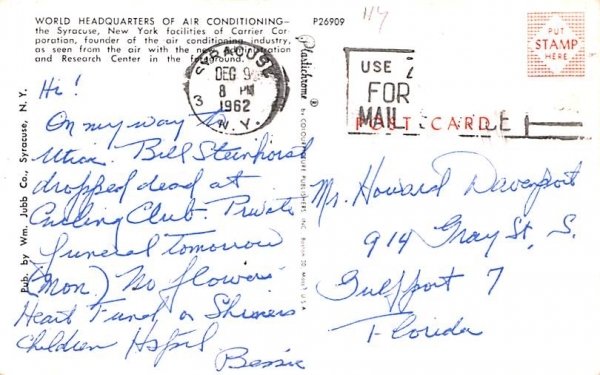 WORLD HEADQUARTERS OF AIR CONDITIONING—
the Syracuse, New York facilities of Carrier Cor-
poration, founder of the air conditioning industry,
as seen from the air with the new Administration
and Research Center in the foreground.
P26909
117
PUT
STAMP
HERE
SYRACUSE
DEC 9
8 PM
1962
N.Y.
3
USE
FOR
MAIL
E
POST CARD
Plastichrome ® by COLOURPICTURE PUBLISHERS, INC. Boston 30, Mass., U.S.A.
Pub. by Wm. Jubb Co., Syracuse, N. Y.
Hi!
On my way to
Utica. Bill Steinhorst
dropped dead at
Curling Club. Private
funeral tomorrow
(Mon.) No flowers
Heart Fund, or Shriners
Children Hospl
Bessie
Mr. Howard Davenport
914 Gray St, S.
Gulfport 7
Florida